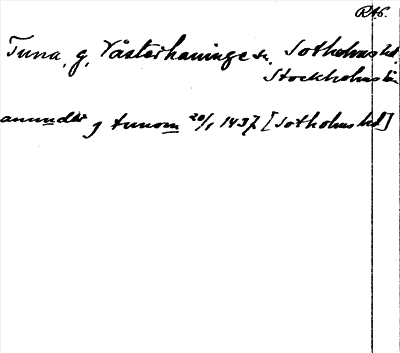 RA6.
Tuna, g, Västerhaninge sn. Sotholms hd.
Stockholms län
anundær j tunom 20/1 1437 [Sotholms hd]